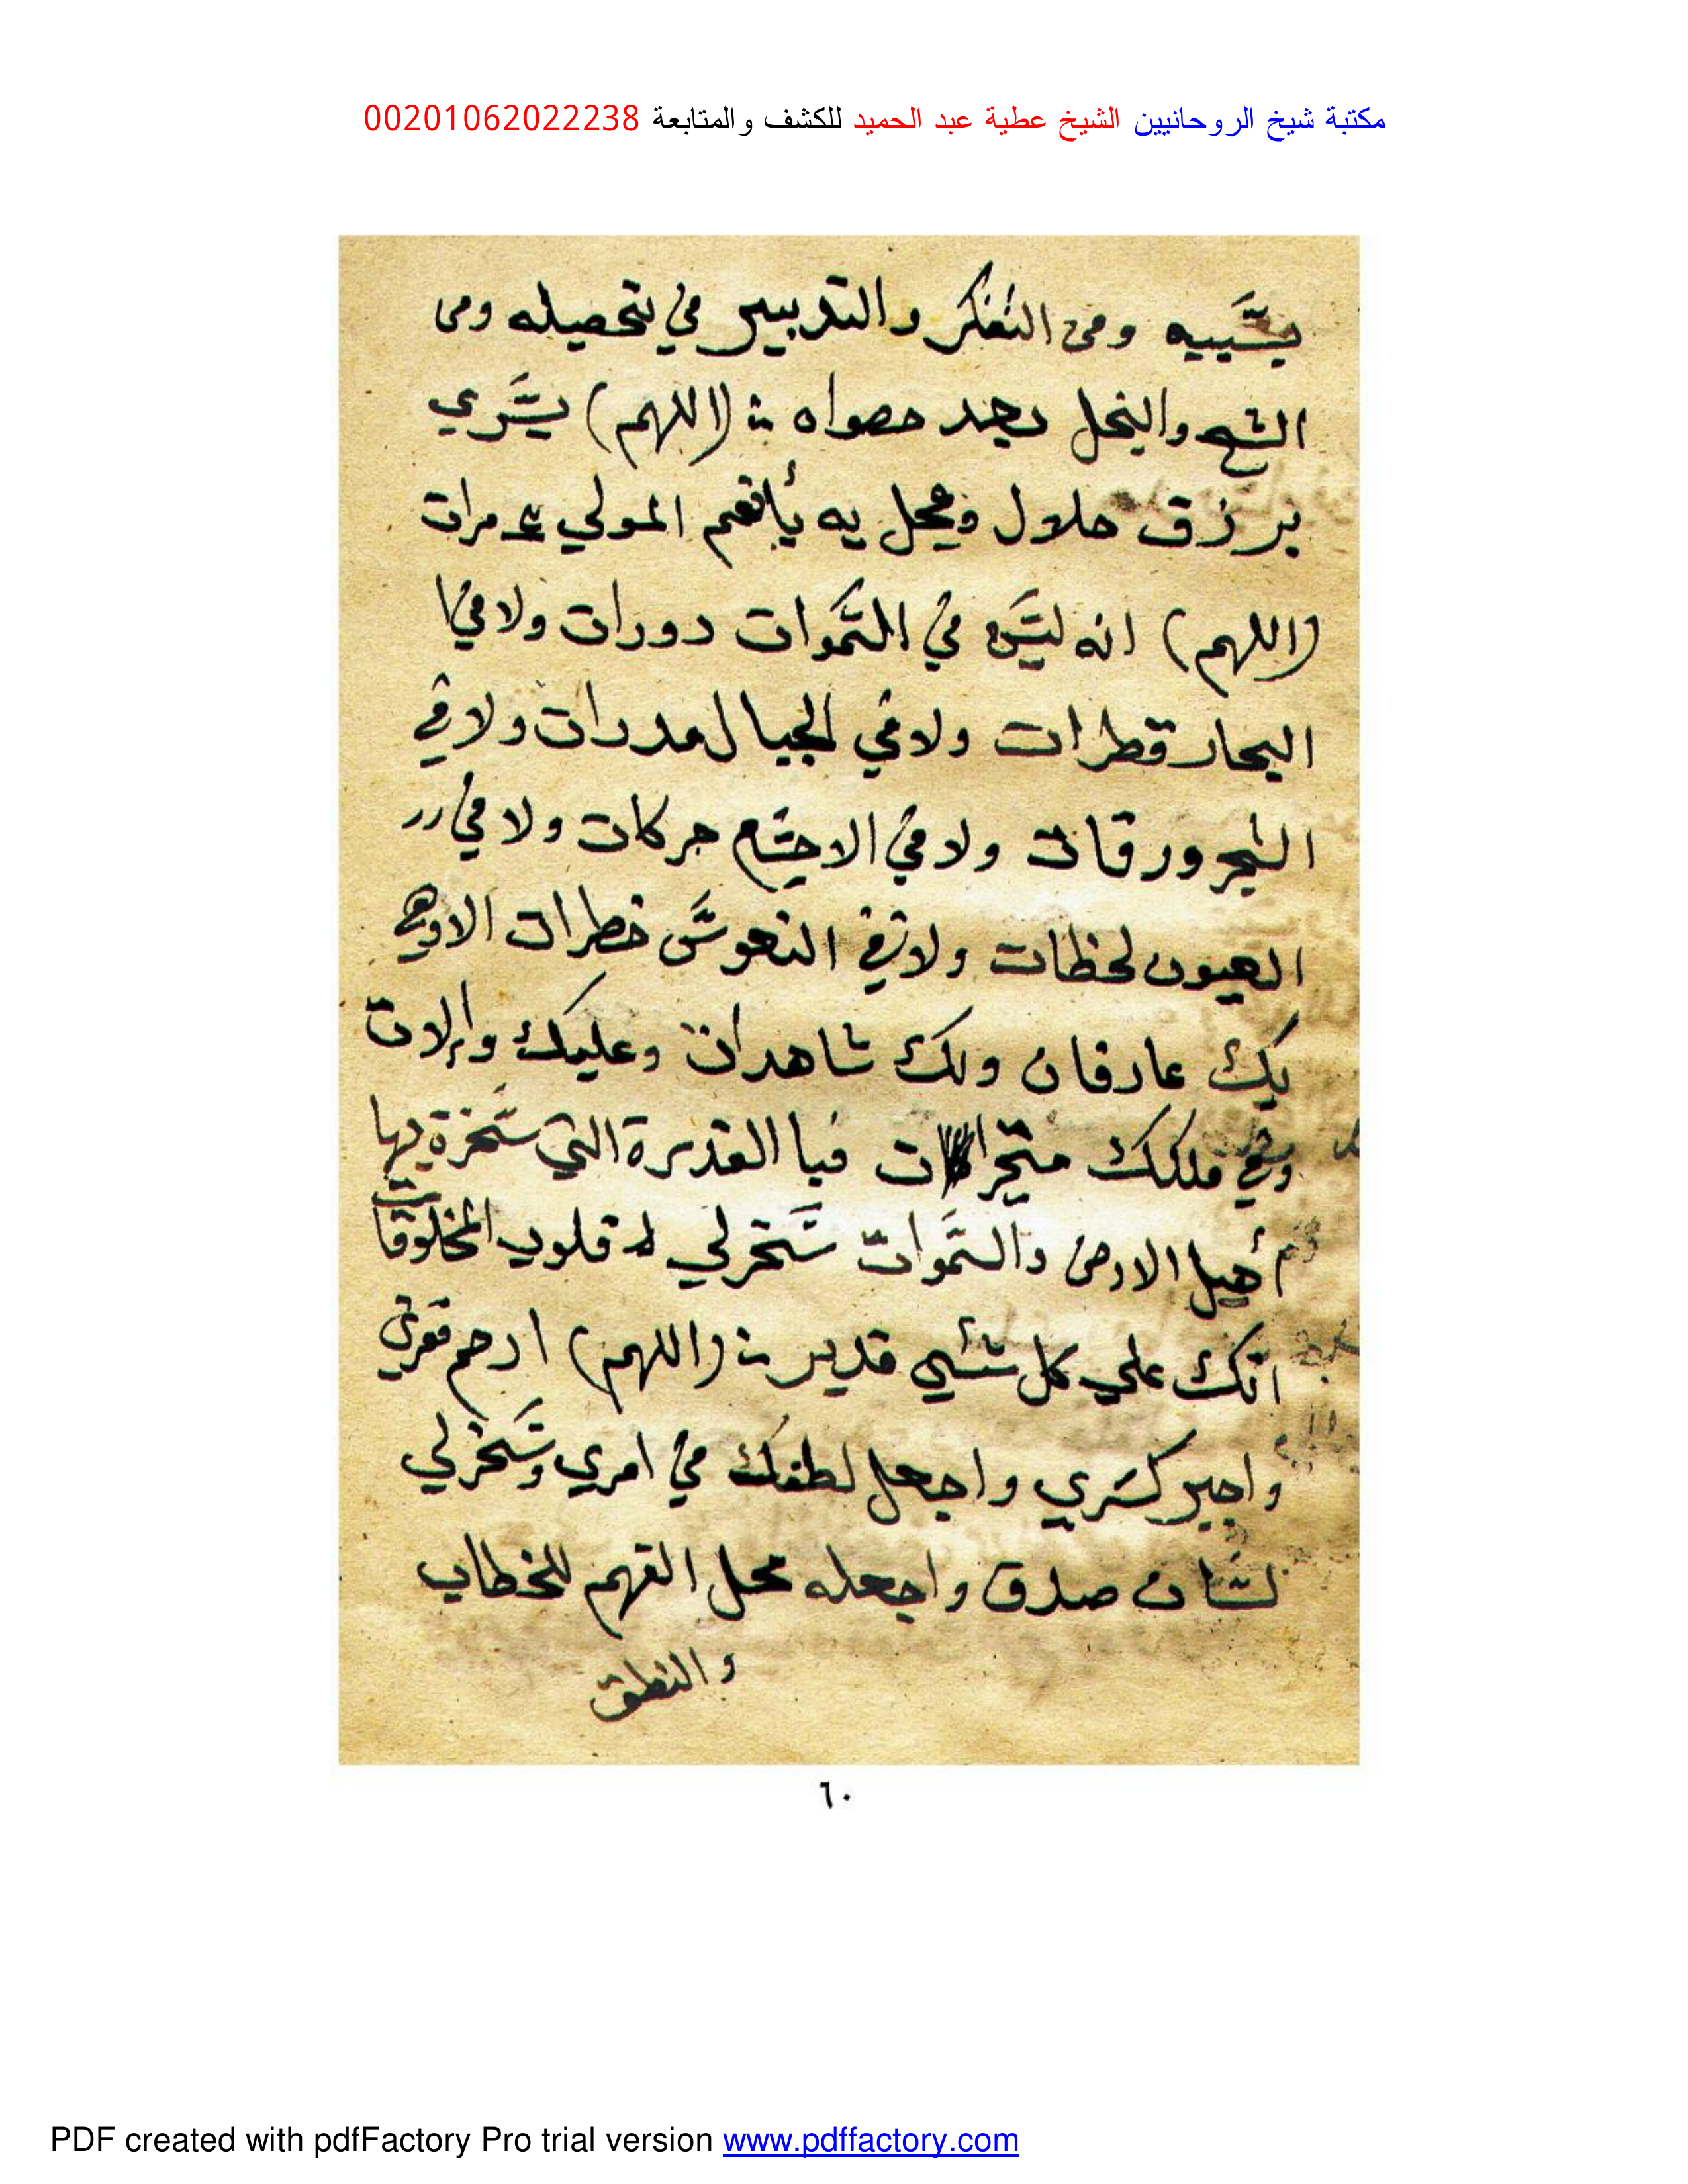 مكتبة شيخ الروحانيين الشيخ عطية عبد الحميد للكشف والمتابعة 00201062022238
ومن التفكر والتدبير في تحصيله ومن
الشح والبخل بعد حصواه (اللهم) يسري
برزق حلال وعجل يه يأنعم المولي مرات
(اللهم) انه ليس في السموات دورات ولا في ا
البحار قطرات ولا في الجبال مدرات ولا في
الشجر ورقات ولا في الاجسام حركات ولا في
العيون لحظات ولا في النفوس خطرات الا وهي
بك عارفات ولك شاهدات وعليك والات
وفي ملكك متحيرات فبا القدرة التي سخرة بها
أهيل الارض والسموات سخرلي قلوب المخلوقات
انك علي كل شئي قدير (اللهم) ارحم فقري
واجبر كسري واجعل لطفك في امري وسخرلي
لسان صدق واجعله محل الفهم للخطاب
والنطق
٦٠
PDF created with pdfFactory Pro trial version www.pdffactory.com